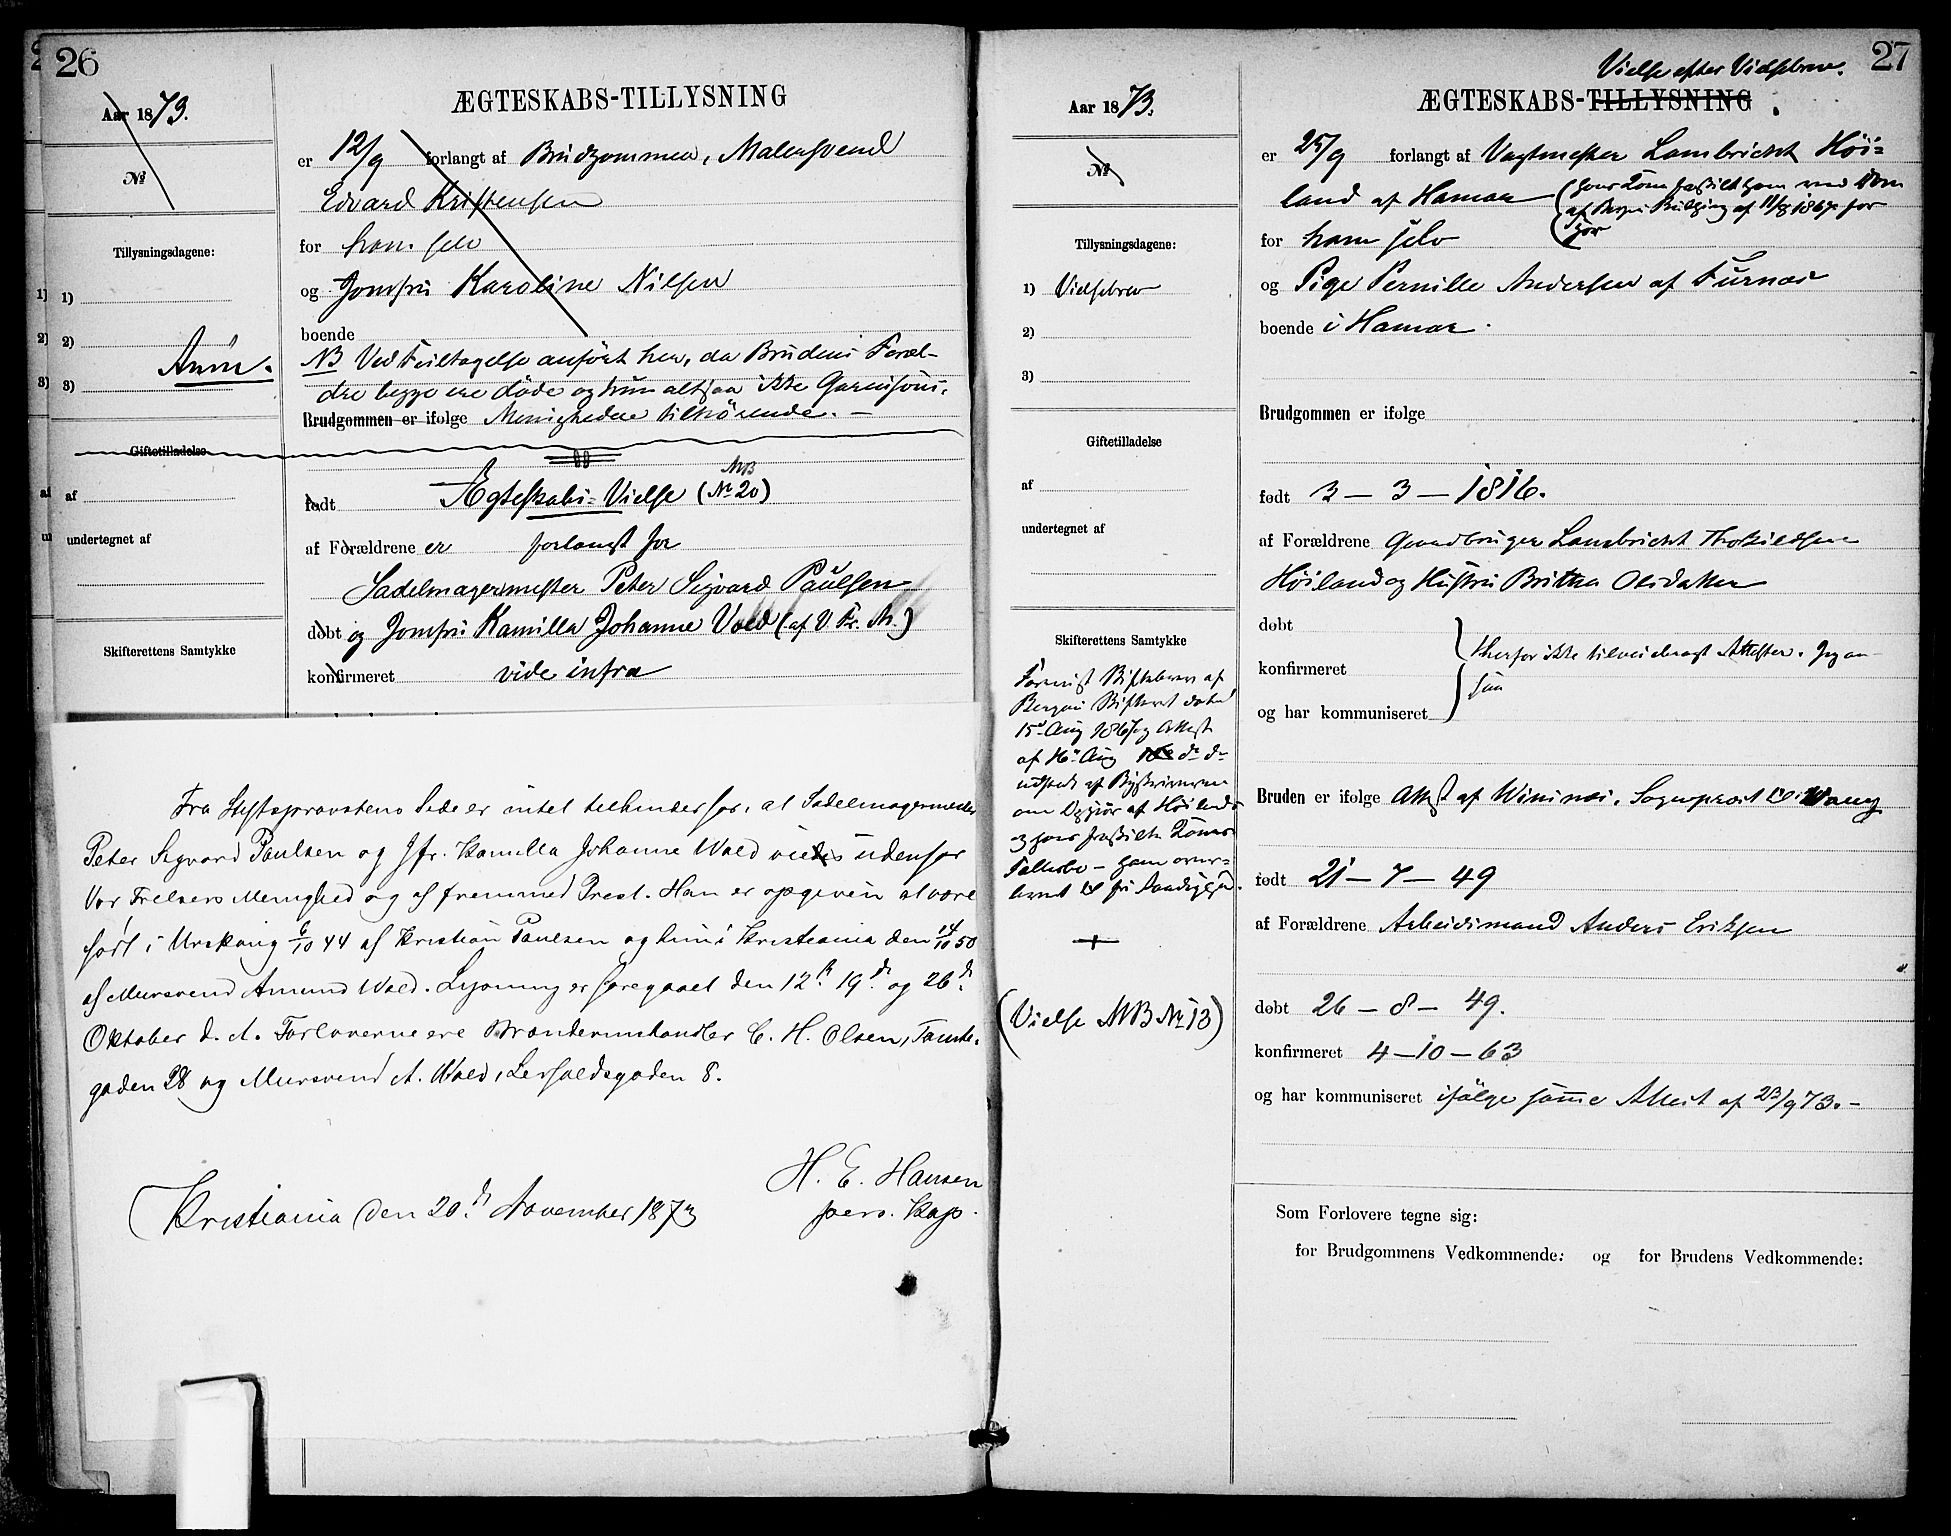 26
Aar 1873.
№
Tillysningsdagene:
1)
2)
3)
Anm.
Giftetilladelse
af
undertegnet af
Skifterettens Samtykke
ÆGTESKABS-TILLYSNING
er 12/9 forlangt af Brudgommen, Malersvend
Edvard Kristensen
for ham selv
og Jomfru Karoline Nilsen
boende
NB Ved Feiltagelse anført her, da Brudens Foræl-
dre begge ere døde og hun altsaa ikke Garnisons-
Brudgommen er ifølge Menigheden tilhørende. —
født Ægteskabs-Vielse (MB № 20)
af Forældrene er forlangt for
Sadelmagermester Peter Sigvard Paulsen
døbt og Jomfru Kamilla Johanne Vold (af V. Fr. M.)
konfirmeret vide infra
Fra Stiftsprovstens Side er intet tilhinder for, at Sadelmagermester
Peter Sigvard Paulsen og Jfr. Kamilla Johanne Wold vies udenfor
Vor Frelsers Menighed og af fremmed Prest. Han er opgiven at være
født i Urskoug 6/10 44 af Kristian Paulsen og hun i Kristiania den 14/10 50
af Mursvend Amund Wold. Lysning er foregaaet den 12te 19de og 26de
Oktober d. A. Forloverne ere Brændevinshandler C. H. Olsen,
gaden 28 og Mursvend A. Wold, Lerfaldsgaden 8.
Kristiania den 20de November 1873
H. E. Hansen
pers. Kap.
27
Aar 1873.
№
Tillysningsdagene:
1) Vielsebrev
2)
3)
Giftetilladelse
af
undertegnet af
Skifterettens Samtykke
Forevist Skiftebrev af
Bergens Skifteret dateret
15de Aug 1867 og Attest
af 16de Aug d. A.
udstedt af Byskriveren
om af Høilands
og hans fraskilte Kones
(Vielse MB № 13)
Vielse efter Vielsebrev.
ÆGTESKABS-TILLYSNING
er 25/9 forlangt af Vagtmester Lambricht Høi-
land af Hamar (hans Kone fraskilt ham ved Dom
af Bergens af 11/8 1867 for
hor)
for ham selv
og Pige Pernille Andersen af Furnæs
boende i Hamar.
Brudgommen er ifølge
født 3 — 3 — 1816.
af Forældrene Gaardbruger Lambricht Thorkildsen
Høiland og Hustru Britha Olsdatter
døbt
konfirmeret
og har kommuniseret
Herfor ikke tilveiebragt Attester.
Bruden er ifølge Attest af Winsnes, Sogneprest til Vang
født 21 — 7 — 49
af Forældrene Arbeidsmand Anders Eriksen
døbt 26 — 8 — 49.
konfirmeret 4 — 10 — 63
og har kommuniseret ifølge samme Attest af 23/9 73. —
Som Forlovere tegne sig:
for Brudgommens Vedkommende: og for Brudens Vedkommende: